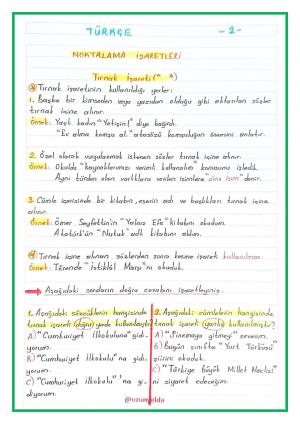 TÜRKÇE -2-
NOKTALAMA İŞARETLERİ
Tırnak İşareti (" ")
Tırnak işaretinin kullanıldığı yerler:
1. Başka bir kimseden veya yazıdan olduğu gibi aktarılan sözler
tırnak içine alınır.
Örnek: Yaşlı kadın "Yetişin!" diye bağırdı.
"Ev alma komşu al." atasözü komşuluğun önemini anlatır.
2. Özel olarak vurgulanmak istenen sözler tırnak içine alınır.
Örnek: Okulda "kaynaklarımızı verimli kullanalım" konusunu işledik.
Aynı türden olan varlıkların verilen isimlere "cins isim" denir.
3. Cümle içerisinde bir kitabın, eserin adı ve başlıkları tırnak içine
alınır.
Örnek: Ömer Seyfettin'in "Yalnız Efe" kitabını okudum.
Atatürk'ün "Nutuk" adlı kitabını aldım.
Tırnak içine alınan sözlerden sonra kesme işareti kullanılmaz.
Örnek: Törende "İstiklâl Marşı"nı okuduk.
Aşağıdaki soruların doğru cevabını işaretleyiniz.
1. Aşağıdaki sözcüklerin hangisinde
tırnak işareti doğru yerde kullanılmıştır?
A) "Cumhuriyet İlkokuluna" gid-
iyorum.
B) "Cumhuriyet İlkokulu"na gi-
diyorum.
C) "Cumhuriyet İlkokulu" 'na gi-
diyorum.
2. Aşağıdaki cümlelerin hangisinde
tırnak işareti yanlış kullanılmıştır?
A) "Sinemaya gitmeyi" severum.
B) Bugün sınıfta "Yurt Türküsü"
şiirini okuduk.
C) "Türkiye Büyük Millet Meclisi"
ni ziyaret edeceğim.
@uzumalda